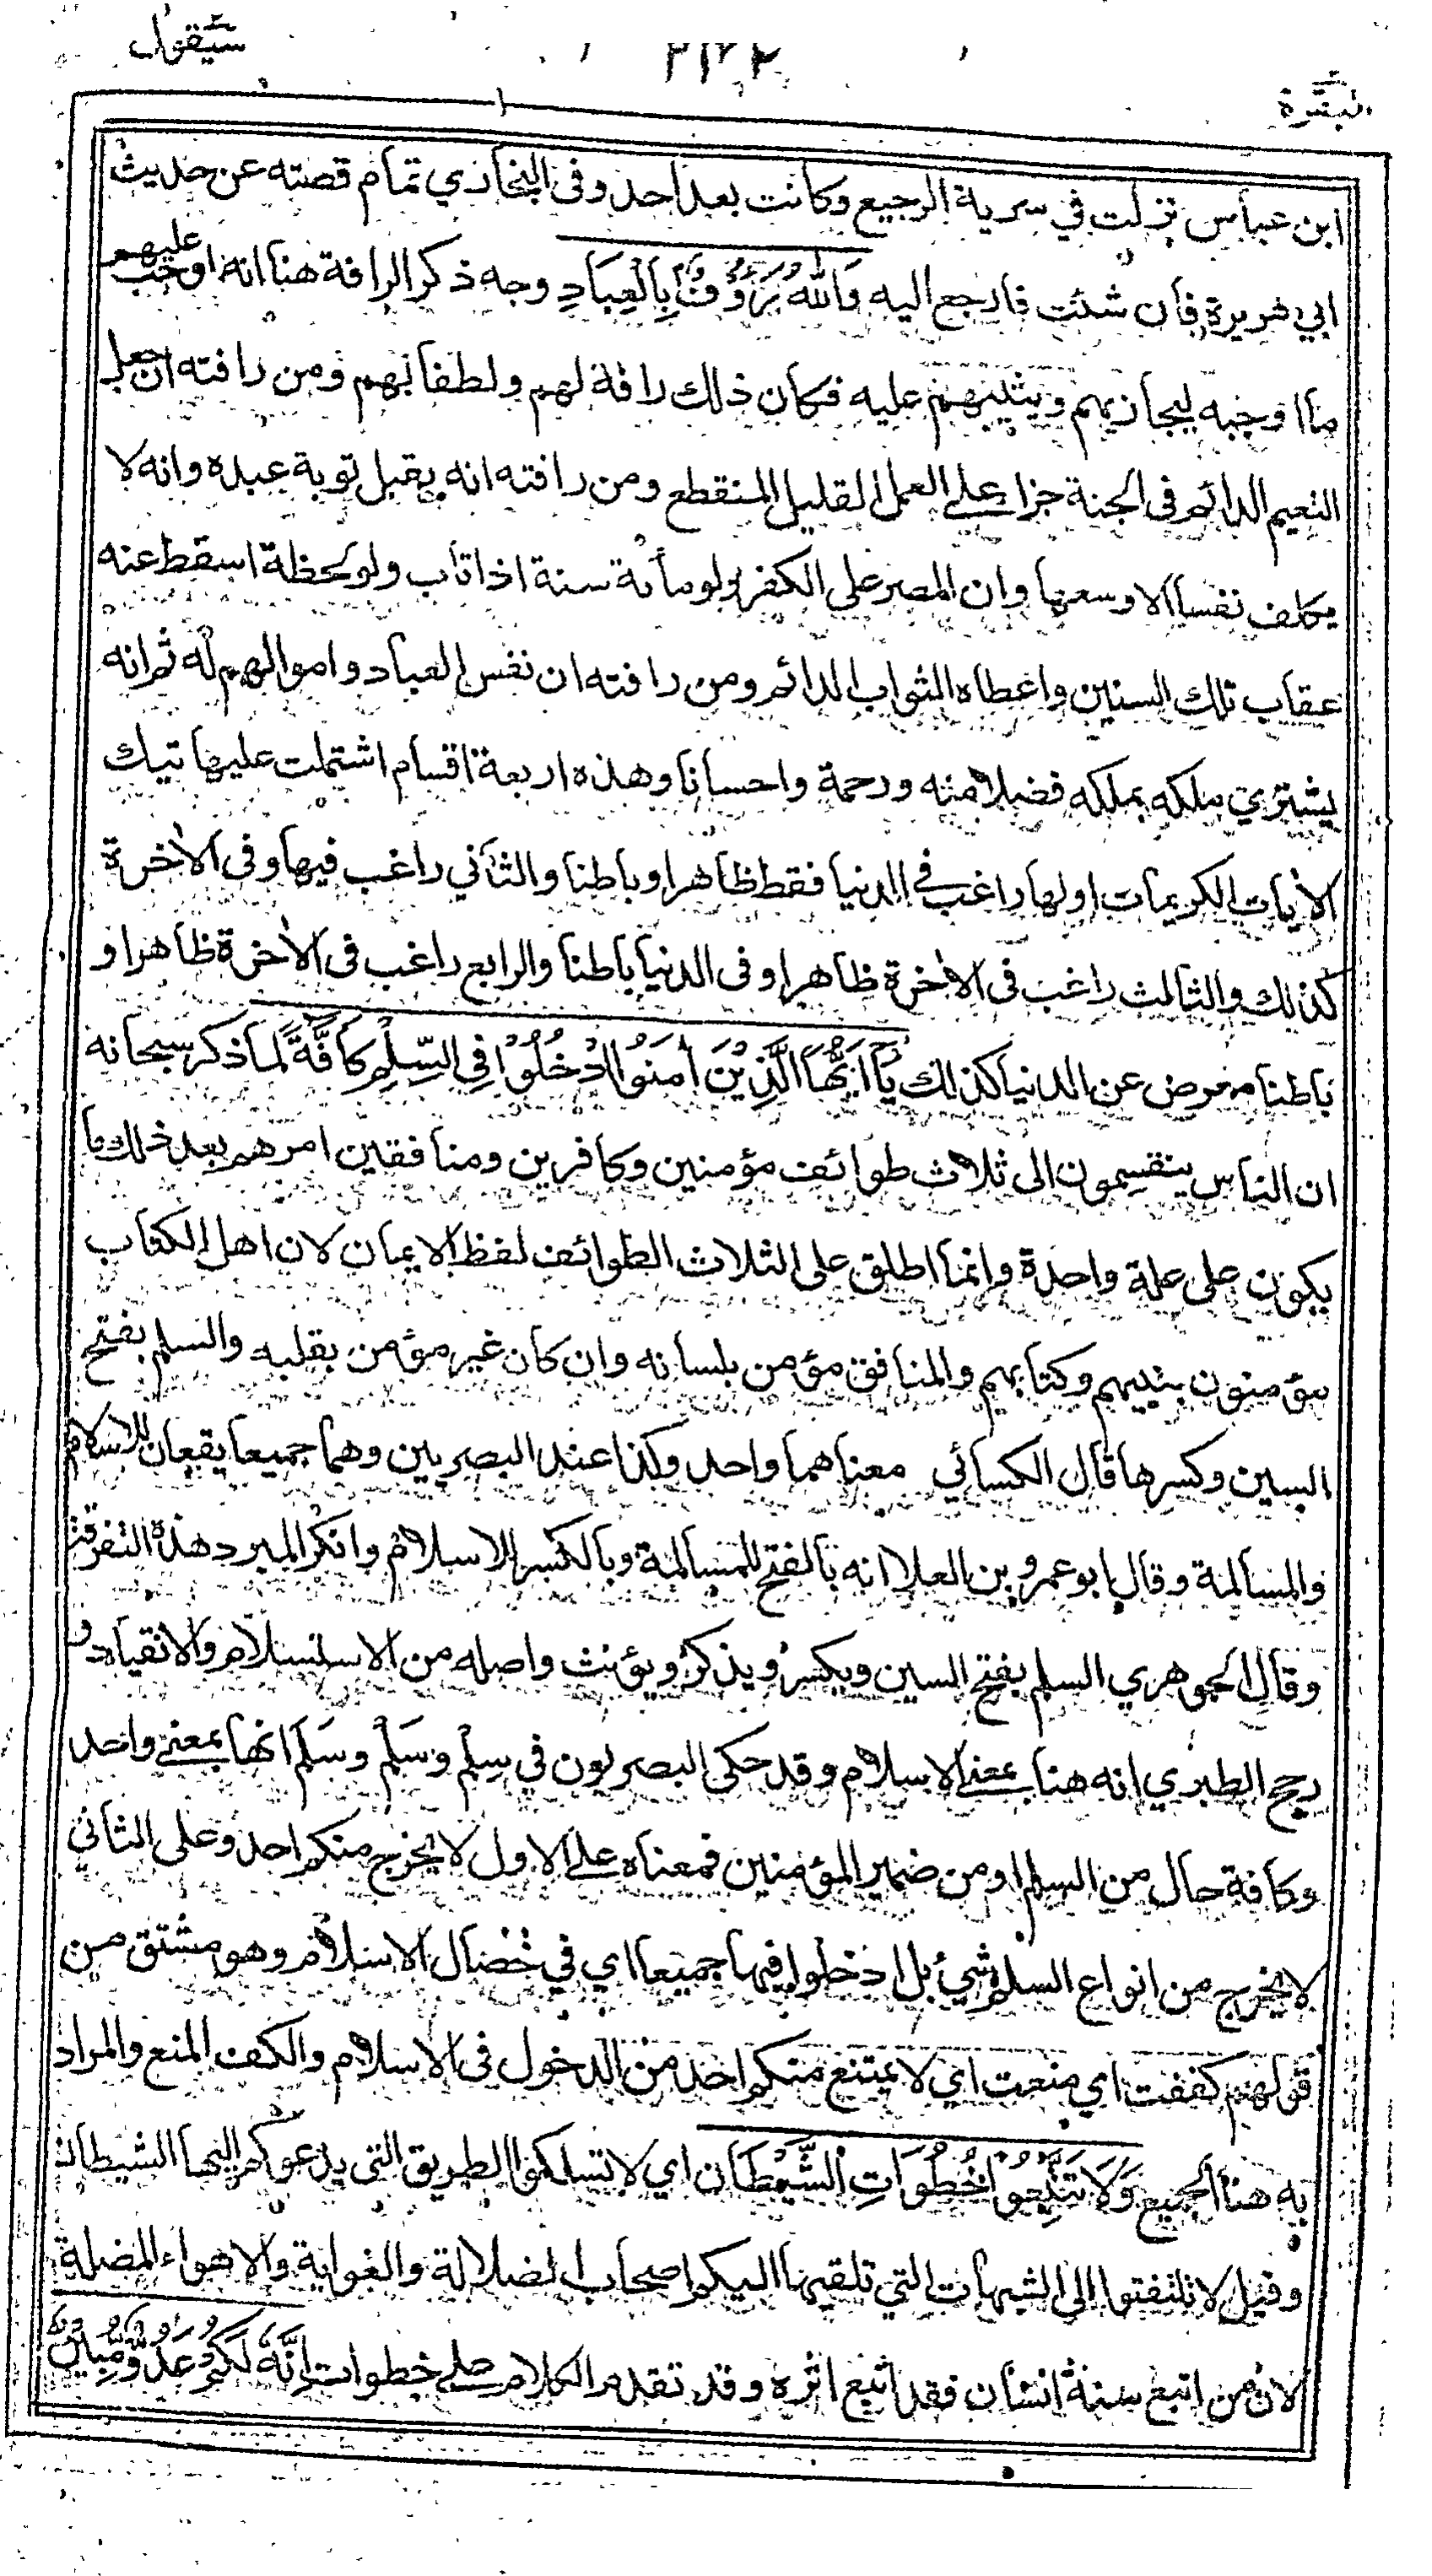 سيقول
٢٦٢
البقرة
ابن عباس نزلت في سرية الرجيع وكانت بعد احد وفى البخاري تمام قصته عن حديث
ابي هريرة فان شئت فارجع اليه وَاللّٰهُ رَؤُوْفٌۢ بِالْعِبَادِ وجه ذكر الرافة هنا انه اوجب عليهم
ما اوجبه ليجازيهم ويثيبهم عليه فكان ذلك رافة لهم ولطفا بهم ومن رافته ان جعل
النعيم الدائم فى الجنة جزاء على العمل القليل المنقطع ومن رافته انه يقبل توبة عبده وانه لا
يكلف نفسا الا وسعها وان المصر على الكفر ولو مائة سنة اذا تاب ولو لحظة اسقط عنه
عقاب تلك السنين واعطاه الثواب الدائم ومن رافته ان نفس العباد واموالهم له ثم انه
يشتري ملكه بملكه فضلا منه ورحمة واحسانا وهذه اربعة اقسام اشتملت عليها تيك
الاٰيات الكريمات اولها راغب فى الدنيا فقط ظاهرا وباطنا والثاني راغب فيها وفى الاٰخرة
كذلك والثالث راغب فى الاٰخرة ظاهرا وفى الدنيا باطنا والرابع راغب فى الاٰخرة ظاهرا و
باطنا معرض عن الدنيا كذلك يٰۤاَيُّهَا الَّذِيْنَ اٰمَنُوا ادْخُلُوْا فِي السِّلْمِ كَآفَّةً لما ذكر سبحانه
ان الناس ينقسمون الى ثلاث طوائف مؤمنين وكافرين ومنافقين امرهم بعد ذلك بما
يكون على علة واحدة وانما اطلق على الثلاث الطوائف لفظ الايمان لان اهل الكتاب
مؤمنون بنبيهم وكتابهم والمنافق مؤمن بلسانه وان كان غير مؤمن بقلبه والسلم بفتح
السين وكسرها قال الكسائي معناهما واحد وكذا عند البصريين وهما جميعا يقعان للاسلام
والمسالمة وقال ابو عمرو بن العلا انه بالفتح للمسالمة وبالكسر للاسلام وانكر المبرد هذه التفرقة
وقال الجوهري السلم بفتح السين ويكسر ويذكر ويؤنث واصله من الاستسلام والانقياد و
رجح الطبري انه هنا بمعنى الاسلام وقد حكى البصريون في سِلْم وسَلْم وسَلَم انها بمعنى واحد
وكافة حال من السلم او من ضمير المؤمنين فمعناه على الاول لا يخرج منكم احد وعلى الثاني
لا يخرج من انواع السلم شيء بل ادخلوا فيها جميعا اي في خصال الاسلام وهو مشتق من
قولهم كففت اي منعت اي لا يمتنع منكم احد من الدخول فى الاسلام والكف المنع والمراد
به هنا الجميع وَلَا تَتَّبِعُوْا خُطُوَاتِ الشَّيْطَان اي لا تسلكوا الطريق التي يدعوكم اليها الشيطان
وقيل لا تلتفتوا الى الشبهات التي تلقيها اليكم اصحاب الضلالة والغواية والاهواء المضلة
لان من اتبع سنة انسان فقد اتبع اثره وقد تقدم الكلام على خطوات اِنَّهٗ لَكُمْ عَدُوٌّ مُّبِيْنٌ